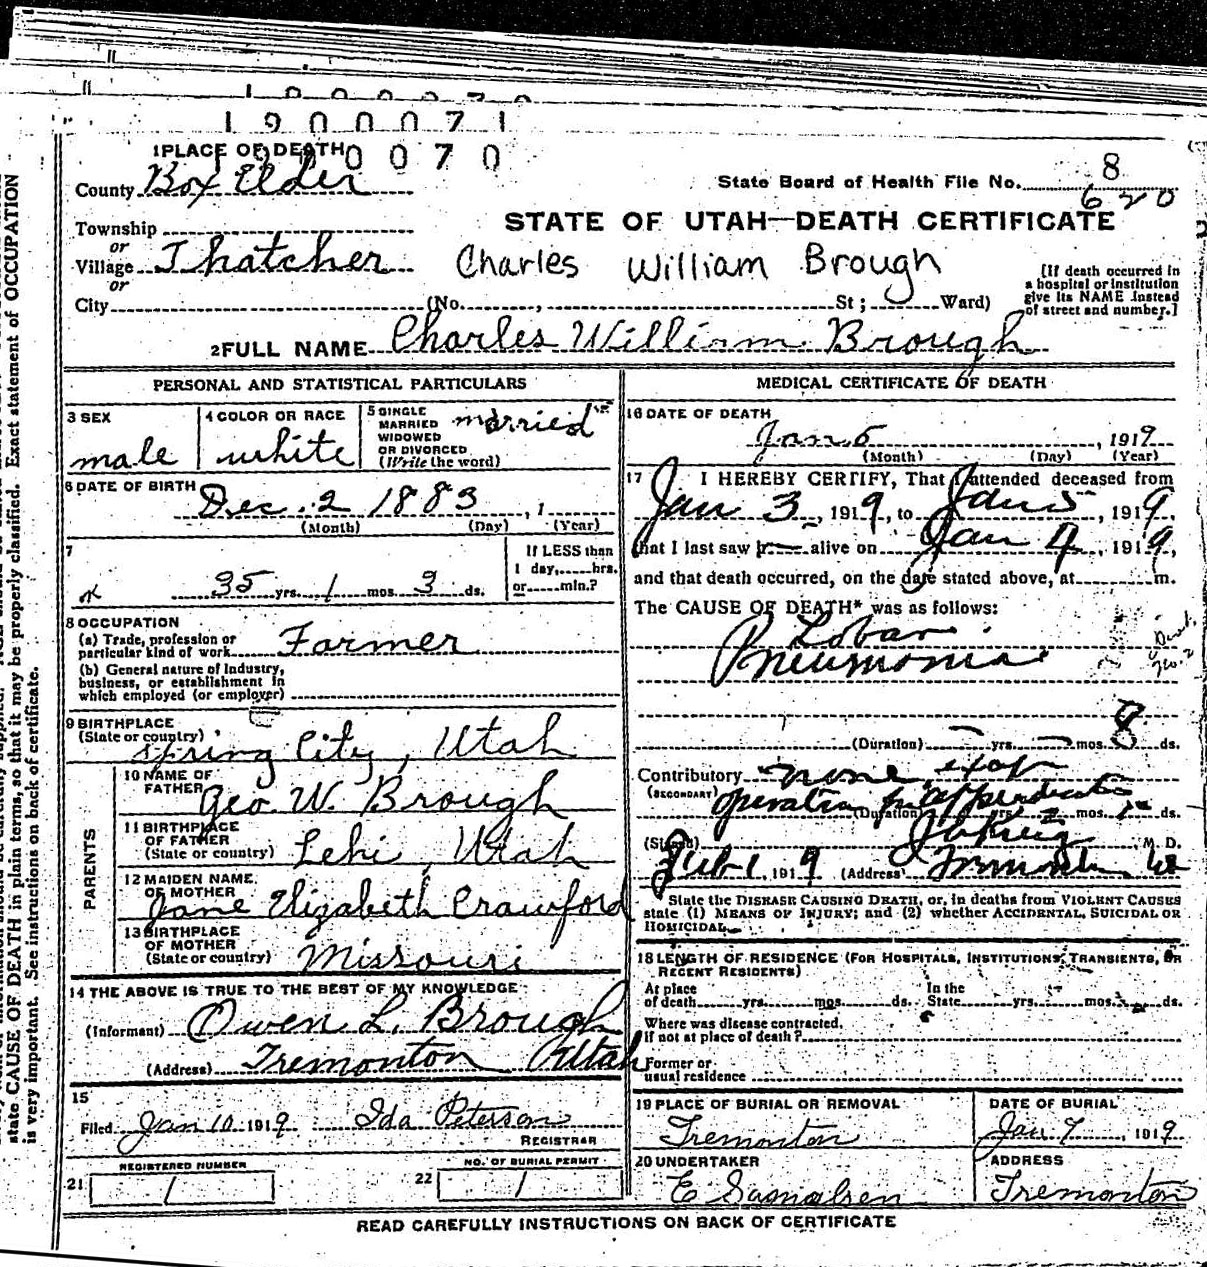 1900071
1 PLACE OF DEATH 0070
County Box Elder
State Board of Health File No. 8
620
Township
or
Village Thatcher
or
City (No. , St ; Ward)
STATE OF UTAH—DEATH CERTIFICATE
Charles William Brough
[If death occurred in
a hospital or institution
give its NAME instead
of street and number.]
2 FULL NAME Charles William Brough
PERSONAL AND STATISTICAL PARTICULARS
3 SEX
male
4 COLOR OR RACE
white
5 SINGLE
MARRIED
WIDOWED
OR DIVORCED
(Write the word)
married
6 DATE OF BIRTH
Dec. 2 1883 , 1
(Month) (Day) (Year)
7
35 yrs. 1 mos. 3 ds.
If LESS than
1 day, hrs.
or min.?
8 OCCUPATION
(a) Trade, profession or
particular kind of work Farmer
(b) General nature of industry,
business, or establishment in
which employed (or employer)
9 BIRTHPLACE
(State or country)
Spring City, Utah
PARENTS
10 NAME OF
FATHER
Geo. W. Brough
11 BIRTHPLACE
OF FATHER
(State or country) Lehi, Utah
12 MAIDEN NAME
OF MOTHER
Jane Elizabeth Crawford
13 BIRTHPLACE
OF MOTHER
(State or country) Missouri
14 THE ABOVE IS TRUE TO THE BEST OF MY KNOWLEDGE
(Informant) Owen L. Brough
(Address) Tremonton Utah
15
Filed Jan 10 1919 Ida Peterson
REGISTRAR
REGISTERED NUMBER
21 1
NO. OF BURIAL PERMIT
22 1
MEDICAL CERTIFICATE OF DEATH
16 DATE OF DEATH
Jan 5 , 1919
(Month) (Day) (Year)
17 I HEREBY CERTIFY, That I attended deceased from
Jan 3 , 1919, to Jan 5 , 1919,
that I last saw alive on Jan 4 , 1919,
and that death occurred, on the date stated above, at m.
The CAUSE OF DEATH* was as follows:
Lobar
Pneumonia
(Duration) yrs. mos. 8 ds.
Contributory none
(SECONDARY) operation
(Duration) yrs. mos. ds.
(Signed) M. D.
1919 (Address)
State the DISEASE CAUSING DEATH, or, in deaths from VIOLENT CAUSES
state (1) MEANS OF INJURY; and (2) whether ACCIDENTAL, SUICIDAL OR
HOMICIDAL.
18 LENGTH OF RESIDENCE (FOR HOSPITALS, INSTITUTIONS, TRANSIENTS, OR
RECENT RESIDENTS)
At place In the
of death yrs. mos. ds. State yrs. mos. ds.
Where was disease contracted,
if not at place of death?
Former or
usual residence
19 PLACE OF BURIAL OR REMOVAL
Tremonton
DATE OF BURIAL
Jan 7 , 1919
20 UNDERTAKER
ADDRESS
Tremonton
READ CAREFULLY INSTRUCTIONS ON BACK OF CERTIFICATE
state CAUSE OF DEATH in plain terms, so that it may be properly classified. Exact statement of OCCUPATION
is very important. See instructions on back of certificate.